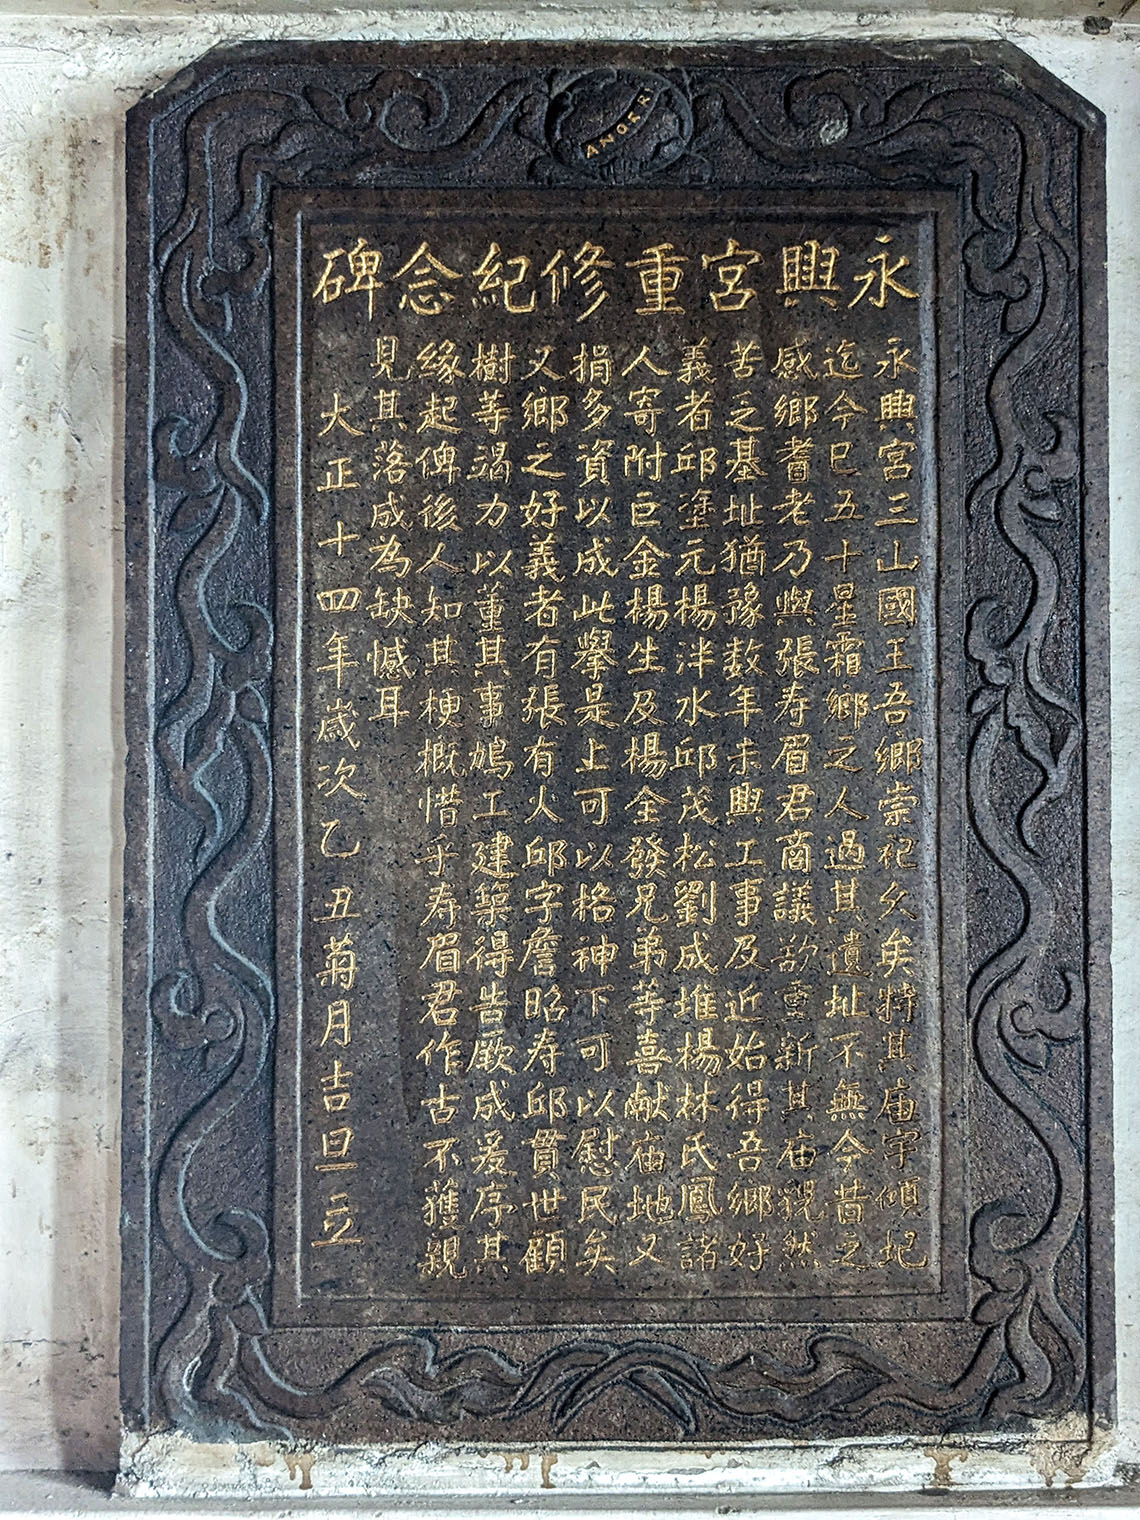 ANGKRI
永興宮重修紀念碑
永興宮三山國王吾鄉崇祀久矣特其庙宇傾圮
迄今已五十星霜鄉之人過其遺址不無今昔之
感鄉耆老乃與張寿眉君商議欲重新其庙貌然
苦乏基址猶豫数年未興工事及近始得吾鄉好
義者邱塗元楊泮水邱茂松劉成堆楊林氏鳳諸
人寄附巨金楊生及楊全發兄弟等喜献庙地又
捐多資以成此舉是上可以格神下可以慰民矣
又鄉之好義者有張有火邱字詹昭寿邱貫世顧
樹等竭力以董其事鳩工建築得告厥成爰序其
緣起俾後人知其梗概惜乎寿眉君作古不獲親
見其落成為缺憾耳
大正十四年歲次乙丑菊月吉旦立